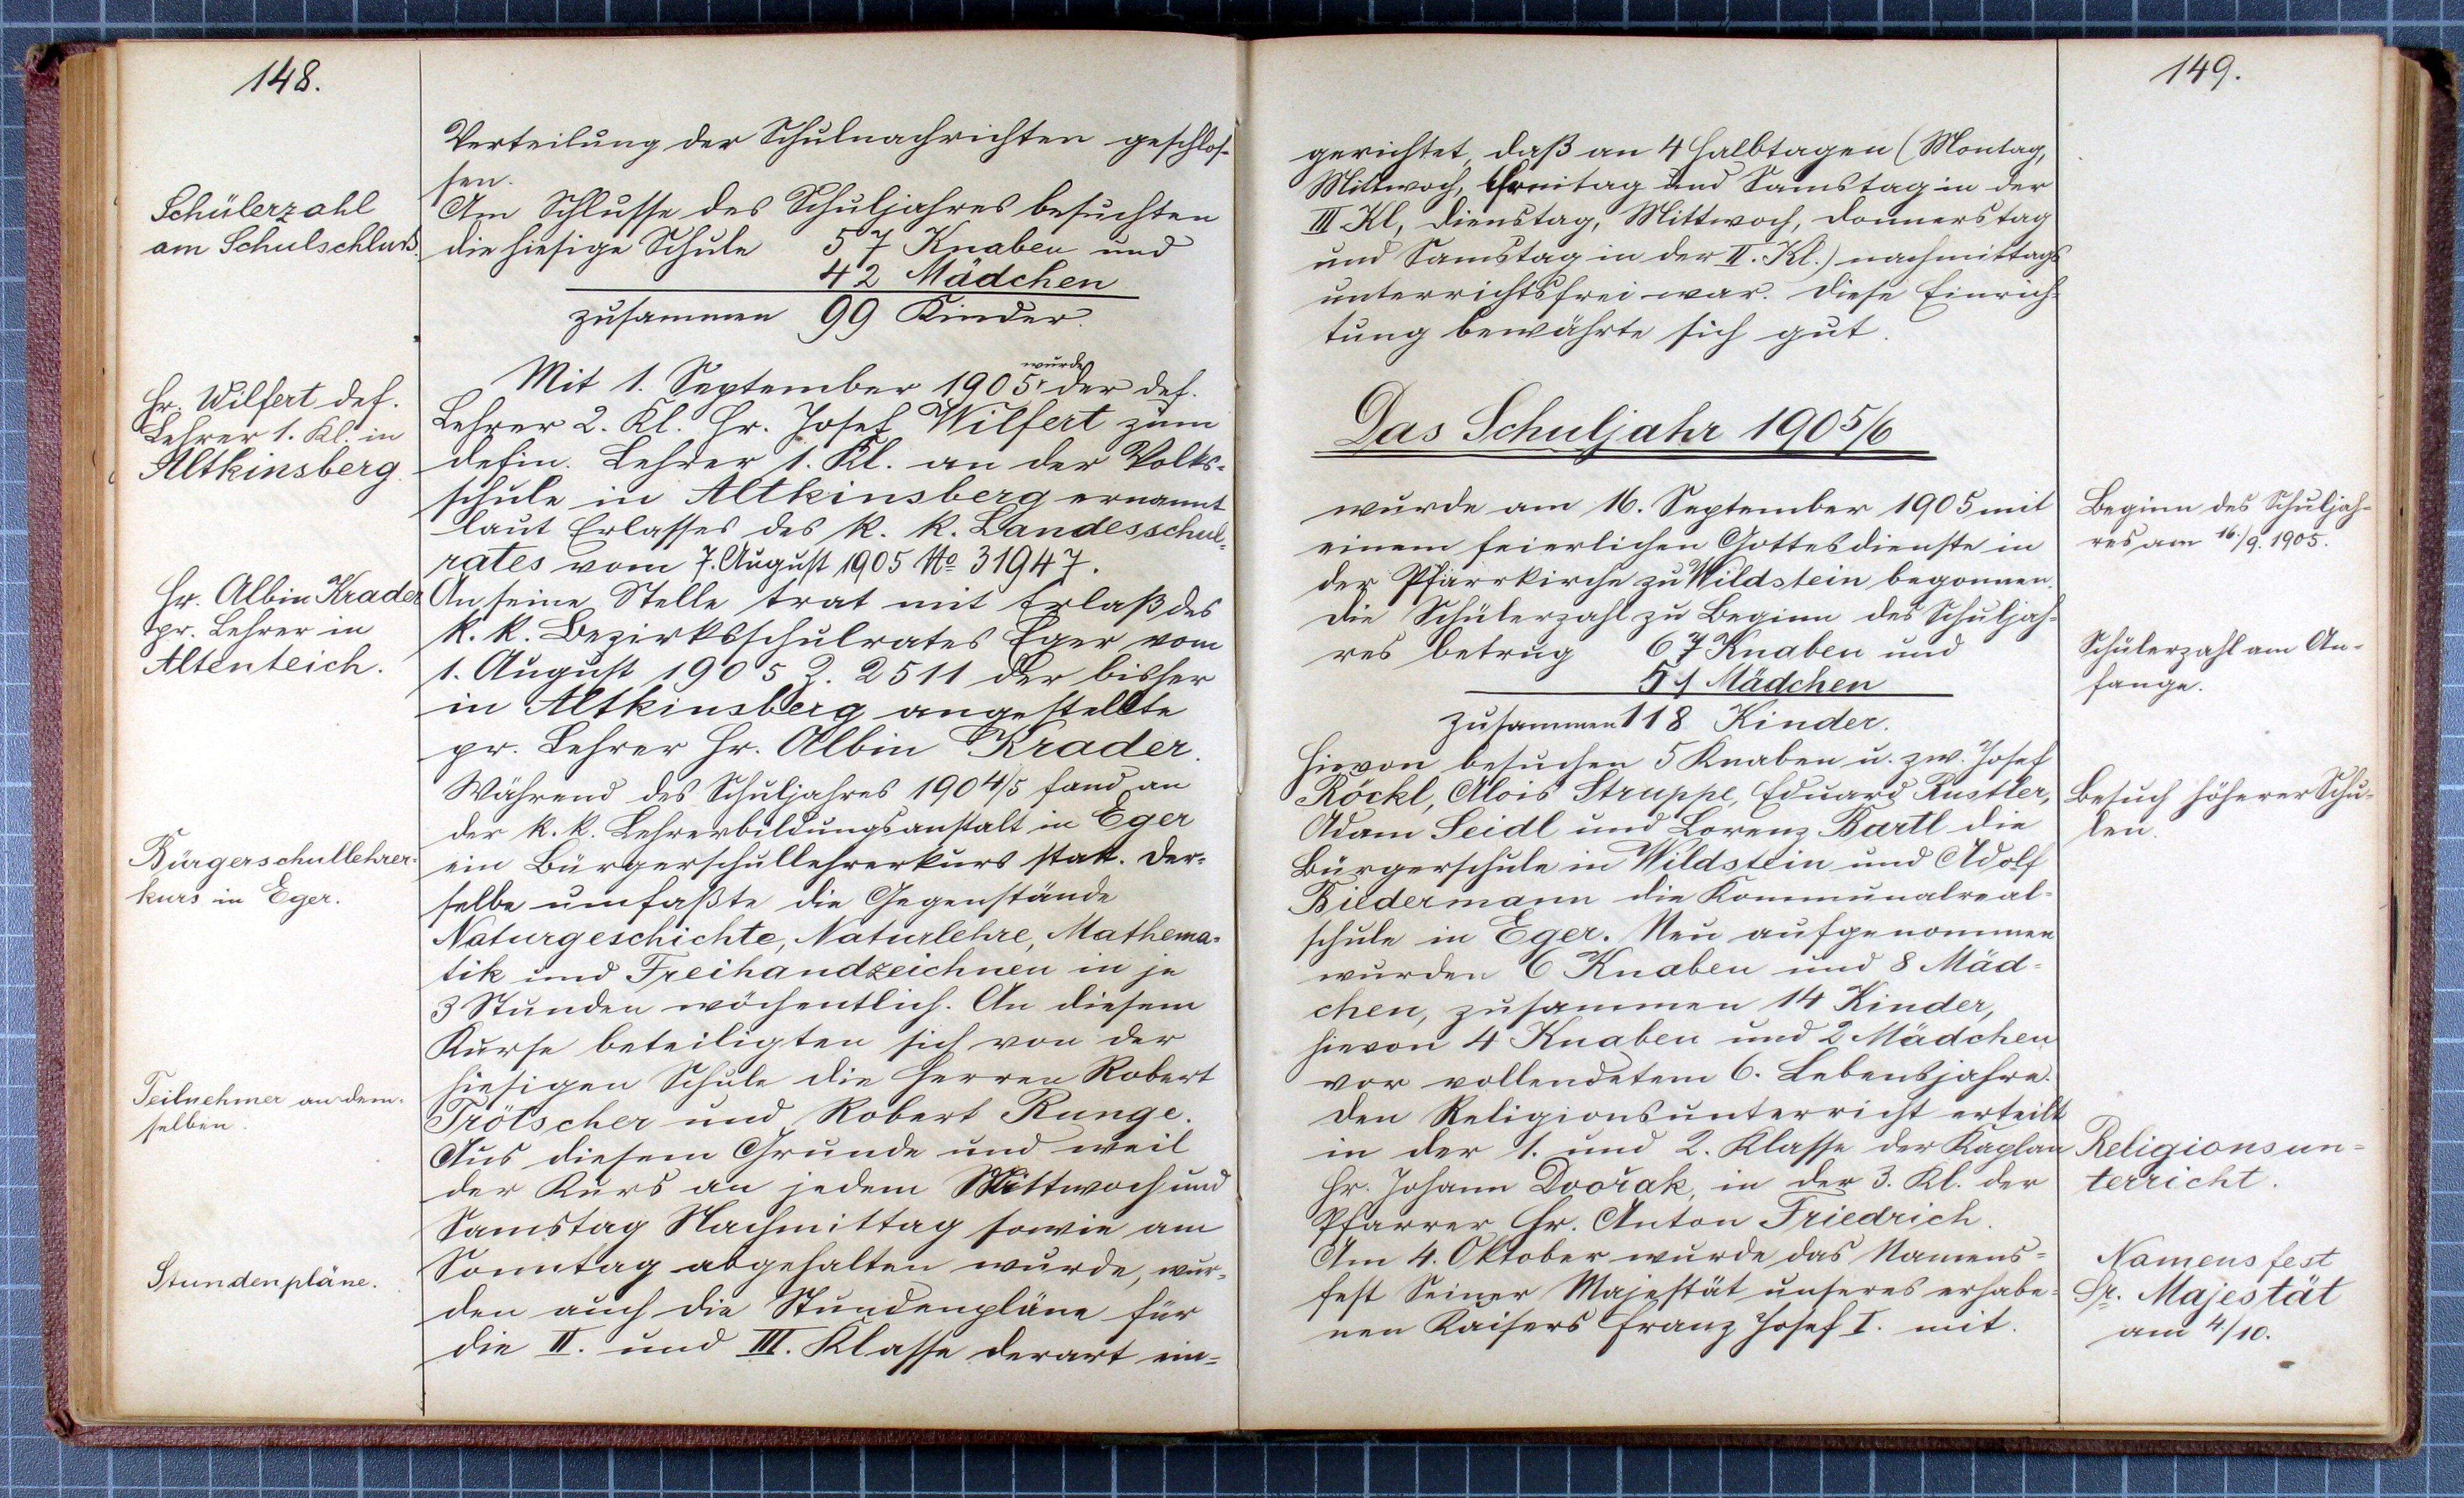 148.
Verteilung der Schulnachrichten geschlos-
sen.
Schülerzahl
am Schulschluß.
Am Schlusse des Schuljahres besuchten
die hiesige Schule 57 Knaben und
42 Mädchen
zusammen 99 Kinder.
Hr. Wilfert def.
Lehrer 1. Kl. in
Altkinsberg.
Mit 1. September 1905 wurde der def.
Lehrer 2. Kl. Hr. Josef Wilfert zum
defin. Lehrer 1. Kl. an der Volks-
schule in Altkinsberg ernannt
laut Erlasses des k. k. Landesschul-
rates vom 7. August 1905 No 31947.
Hr. Albin Krader
pr. Lehrer in
Altenteich.
An seine Stelle trat mit Erlaß des
k. k. Bezirksschulrates Eger vom
1. August 1905 Z. 2511 der bisher
in Altkinsberg angestellte
pr. Lehrer Hr. Albin Krader.
Bürgerschullehrer-
kurs in Eger.
Während des Schuljahres 1904/5 fand an
der k. k. Lehrerbildungsanstalt in Eger
ein Bürgerschullehrerkurs statt. Der-
selbe umfaßte die Gegenstände
Naturgeschichte, Naturlehre, Mathema-
tik und Freihandzeichnen in je
3 Stunden wöchentlich. An diesem
Kurse beteiligten sich von der
Teilnehmer an dem-
selben.
hiesigen Schule die Herren Robert
Trötscher und Robert Runge.
Aus diesem Grunde und weil
der Kurs an jedem Mittwoch und
Samstag Nachmittag sowie am
Stundenpläne.
Sonntag abgehalten wurde, wur-
den auch die Stundenpläne für
die II. und III. Klasse derart ein-
149.
gerichtet, daß an 4 Halbtagen (Montag,
Mittwoch, Freitag und Samstag in der
III Kl, Dienstag, Mittwoch, Donnerstag
und Samstag in der II. Kl.) nachmittags
unterrichtsfrei war. Diese Einrich-
tung bewährte sich gut.
Das Schuljahr 1905/6
Beginn des Schuljah-
res am 16./9. 1905.
wurde am 16. September 1905 mit
einem feierlichen Gottesdienste in
der Pfarrkirche zu Wildstein begonnen.
Schülerzahl am An-
fange.
Die Schülerzahl zu Beginn des Schuljah-
res betrug 67 Knaben und
51 Mädchen
zusammen 118 Kinder.
Besuch höherer Schu-
len.
Hievon besuchen 5 Knaben u. zw. Josef
Röckl, Alois Struppe, Eduard Rustler,
Adam Seidl und Lorenz Bartl die
Bürgerschule in Wildstein und Adolf
Biedermann die Kommunalreal-
schule in Eger. Neu aufgenommen
wurden 6 Knaben und 8 Mäd-
chen, zusammen 14 Kinder,
hievon 4 Knaben und 2 Mädchen
vor vollendetem 6. Lebensjahre.
Religionsun-
terricht.
Den Religionsunterricht erteilt
in der 1. und 2. Klasse der Kaplan
Hr. Johann Dvořak, in der 3. Kl. der
Pfarrer Hr. Anton Friedrich.
Namensfest
Sr. Majestät
am 4./10.
Am 4. Oktober wurde das Namens-
fest Seiner Majestät unseres erhabe-
nen Kaisers Franz Josef I. mit